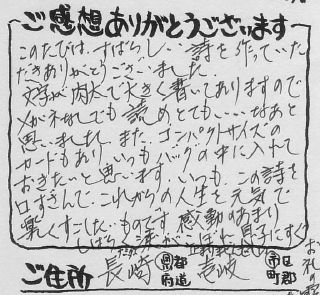 ご感想ありがとうございます
このたびは、すばらしい詩を作っていた
だきありがとうございました。
文字が肉太で大きく書いてありますので
メガネなしでも読めとても…いいなあと
思いました。また、コンパクトサイズの
カードもあり、いつもバックの中に入れて
おきたいと思います。いつも、この詩を
口ずさんで、これからの人生を元気で
楽しくすごしたいものです。感動のあまり
しばらく涙が
息子にすぐ
ご住所
長崎
都道
府県
壱岐
市区
町
郡
お礼の